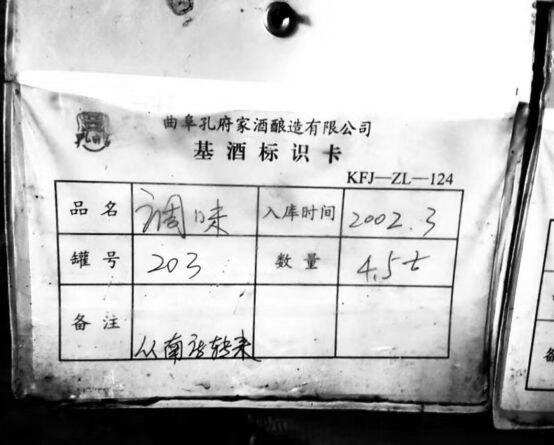 曲阜孔府家酒酿造有限公司
基酒标识卡
KFJ—ZL—124
品名 调味 入库时间 2002.3
罐号 203 数量 4.5t
备注 从南 转来